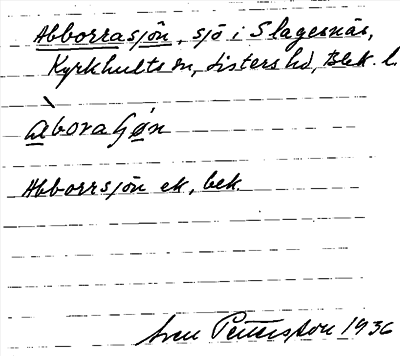 Abborrasjön, sjö i Slagesnäs,
Kyrkhults sn, Listers hd, Blek. l.
àboraʃøn
Abborrsjön ek, bek.
Sven Pettersson 1936